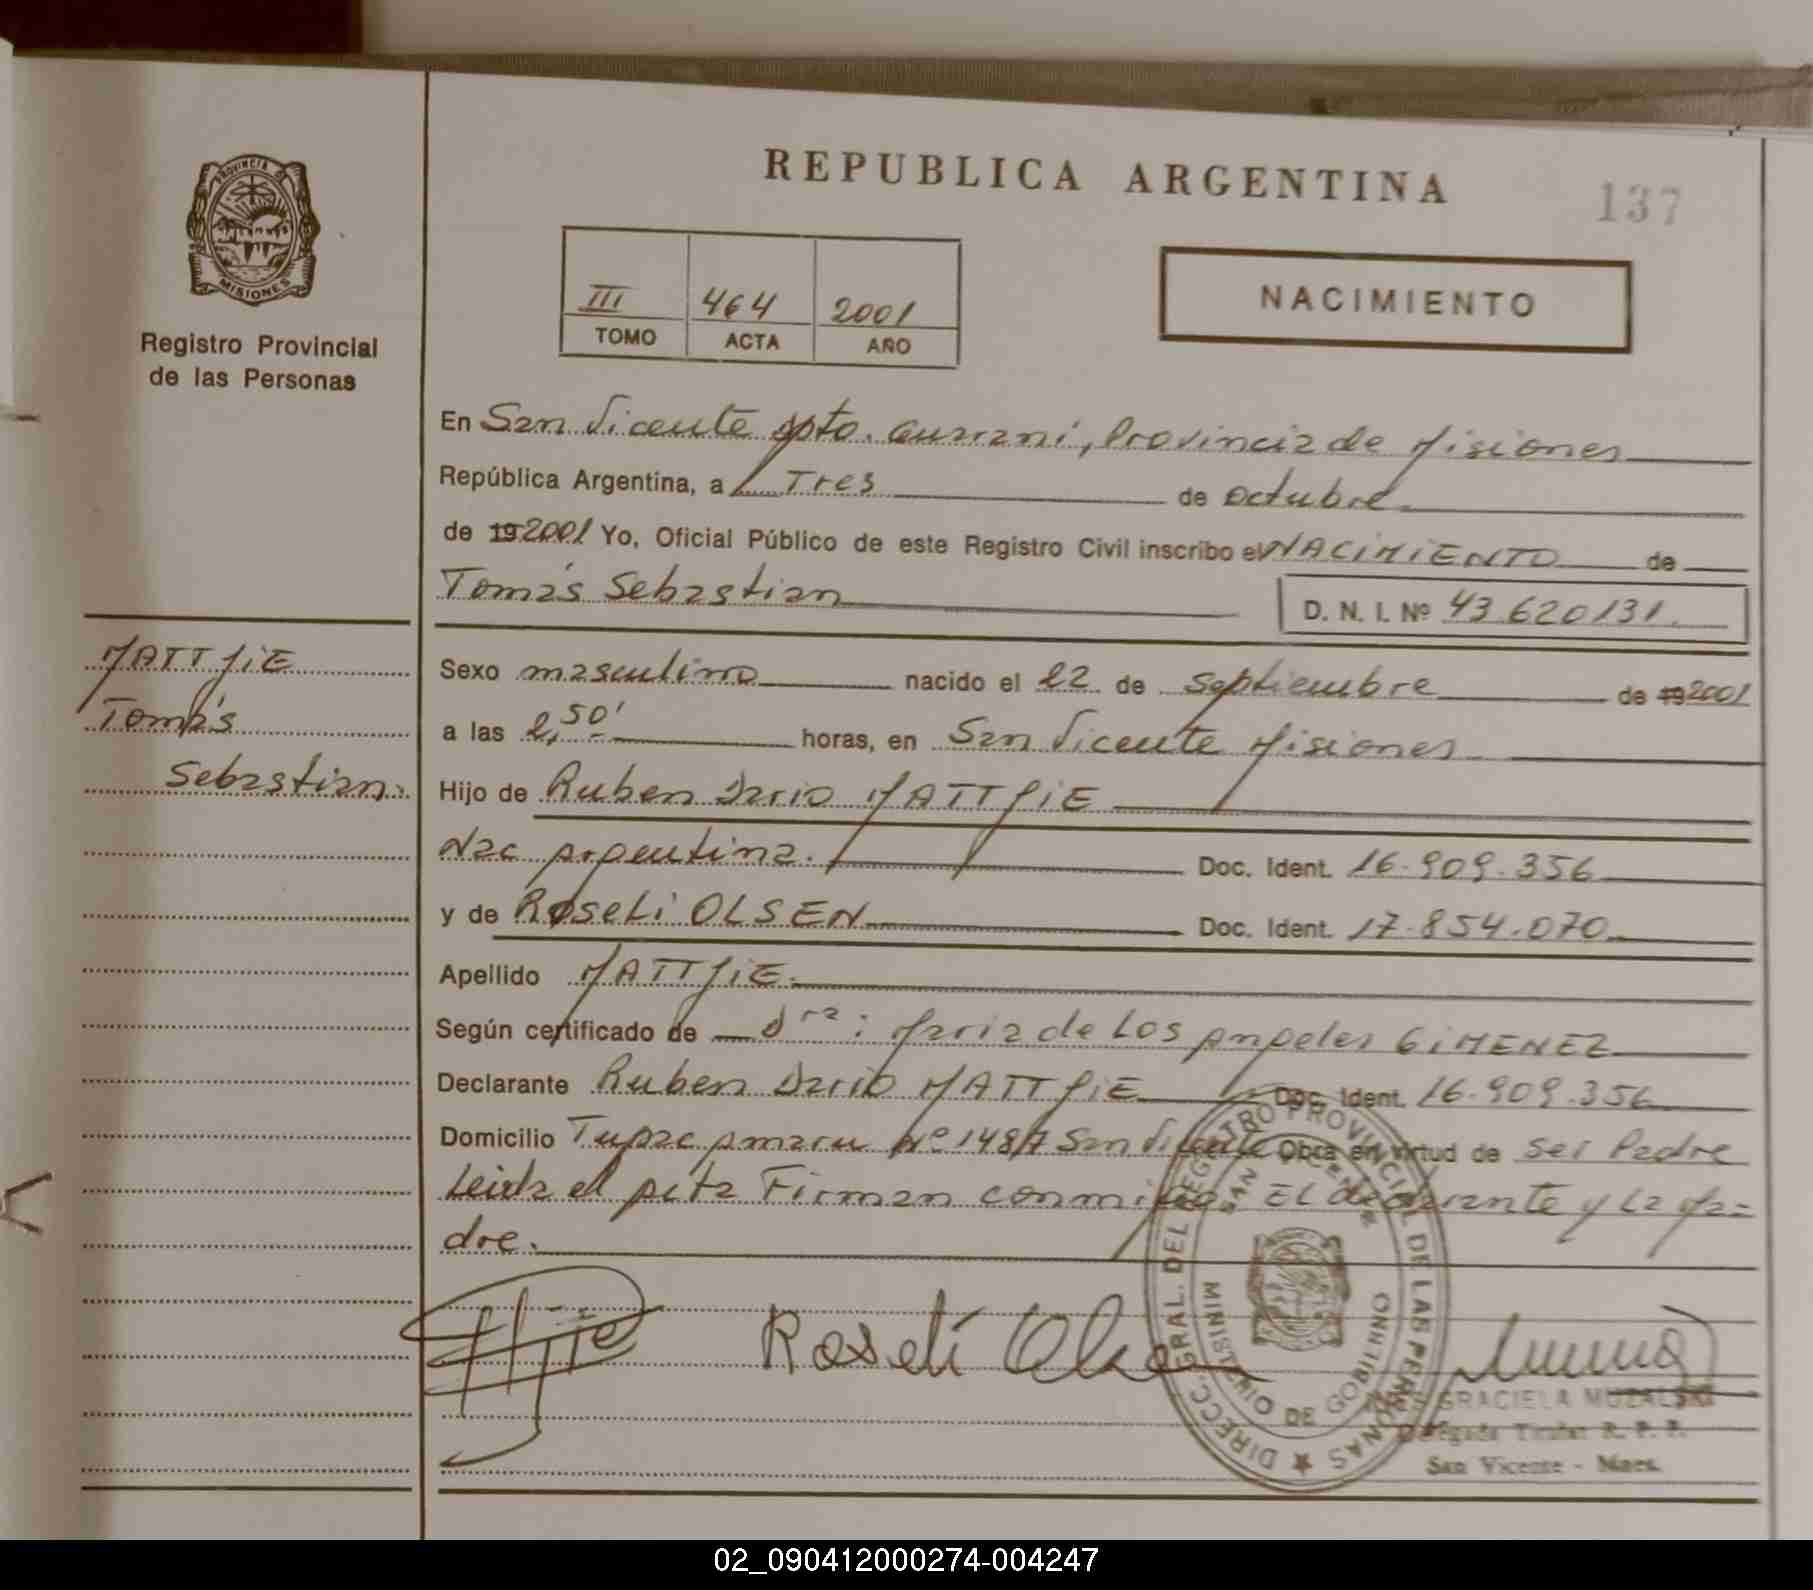 REPUBLICA ARGENTINA
137
PROVINCIA DE
MISIONES
Registro Provincial
de las Personas
III 464 2001
TOMO ACTA AÑO
NACIMIENTO
En San Vicente Dpto. Guaraní, Provincia de Misiones
República Argentina, a Tres de Octubre
de 19 2001 Yo, Oficial Público de este Registro Civil inscribo el NACIMIENTO de
Tomás Sebastian D. N. I. Nº 43.620131.
MATTJiE
Tomás
Sebastian.
Sexo masculino nacido el 22 de Septiembre de 19 2001
a las 2,50' horas, en San Vicente Misiones
Hijo de Ruben Dario MATTJiE
Nac Argentina. Doc. Ident. 16.909.356
y de Roseli OLSEN Doc. Ident. 17.854.070
Apellido MATTJiE
Según certificado de Dra: Maria de Los Angeles GiMENEZ
Declarante Ruben Dario MATTJiE Doc. Ident. 16.909.356
Domicilio Tupac Amaru Nº 1487 San Vicente Obra en virtud de ser Padre
Leida el Acta Firman conmigo EL declarante y La Ma=
dre.
Roseli Olsen
DIRECC. GRAL. DEL REGISTRO PROVINCIAL DE LAS PERSONAS
SAN VICENTE
MINISTERIO DE GOBIERNO
GRACIELA MUZALSKI
Delegada Titular R. P. P.
San Vicente - Mnes.
02_090412000274-004247